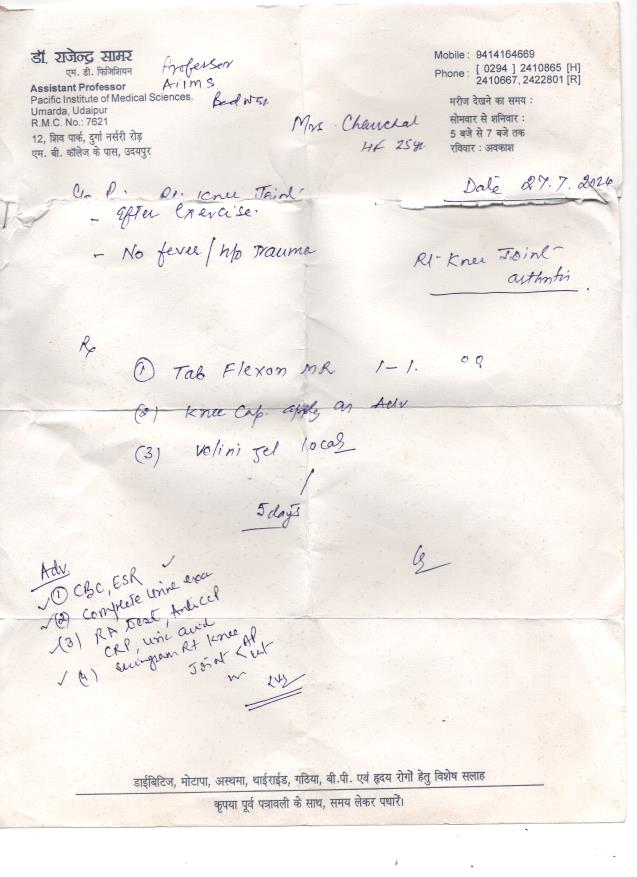 डॉ. राजेन्द्र सामर
एम. डी. फिजिशियन
Professor
Aiims
Assistant Professor
Pacific Institute of Medical Sciences.
Umarda, Udaipur
R.M.C. No.: 7621
12, शिव पार्क, दुर्गा नर्सरी रोड़
एम. बी. कॉलेज के पास, उदयपुर
Mobile : 9414164669
Phone : [ 0294 ] 2410865 [H]
2410667, 2422801 [R]
मरीज देखने का समय :
सोमवार से शनिवार :
5 बजे से 7 बजे तक
रविवार : अवकाश
Mrs. Chanchal
25yr
Date 27.7.
Rt. Knee Joint
- after Exercise.
- No fever / h/o Trauma
Rt- Knee Joint-
arthritis.
Rx
(1) Tab Flexon MR 1-1.
(2) Knee Cap. apply as Adv
(3) Volini Gel local
5 days
Adv.
(1) CBC, ESR
(2) Complete Urine exa
(3) RA test, Anti CCP
CRP, Uric acid
(4) Rt Knee
Joint < AP
डाईबिटिज, मोटापा, अस्थमा, थाईराईड, गठिया, बी.पी. एवं हृदय रोगों हेतु विशेष सलाह
कृपया पूर्व पत्रावली के साथ, समय लेकर पधारें।